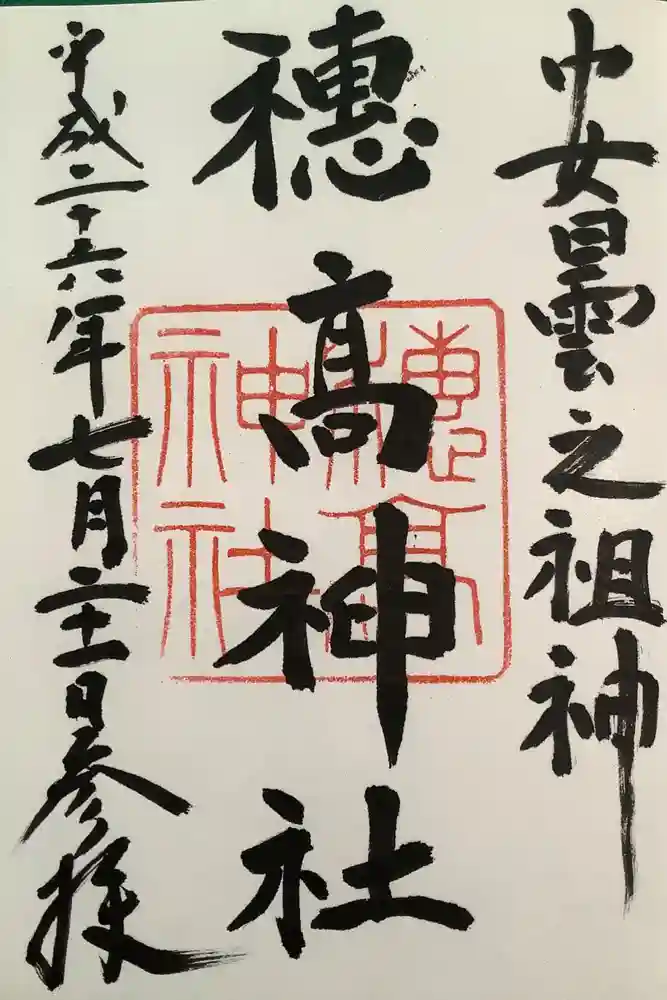 安曇之祖神
穗高神社
平成二十六年七月二十一日参拝
穗高
神社